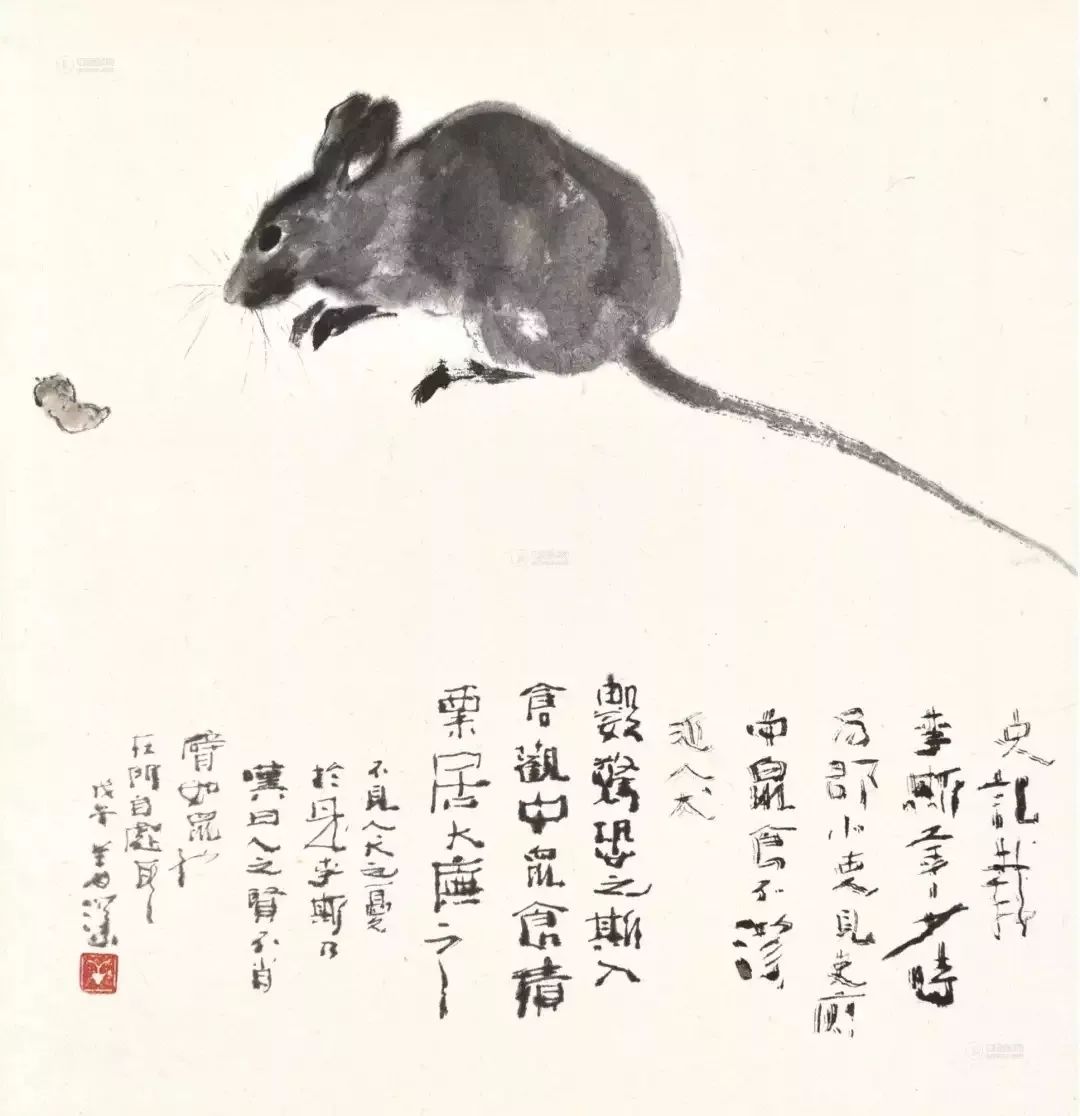 史記
李斯年少時
為郡小吏見吏廁
中鼠食不潔
近人犬
數驚恐之斯入
倉觀中鼠食積
粟居大廡之下
不見人犬之憂
於是李斯乃
嘆曰人之賢不肖
譬如鼠
在所自處耳
戊午